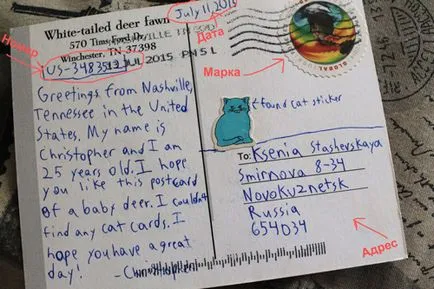 White-tailed deer fawn
570 Tims Ford Dr.
Winchester, TN 37398
July 11, 2015
Номер
Дата
US-3483513
JUL 2015 PM 5 L
Марка
GLOBAL
Greetings from Nashville,
Tennessee in the United
States. My name is
Christopher and I am
25 years old. I hope
you like this postcard
of a baby deer. I couldn't
find any cat cards. I
hope you have a great
day! -Christopher
I found cat sticker
To: Ksenia Stashevskaya
Smirnova 8-34
Novokuznetsk
Russia
654034
Адрес